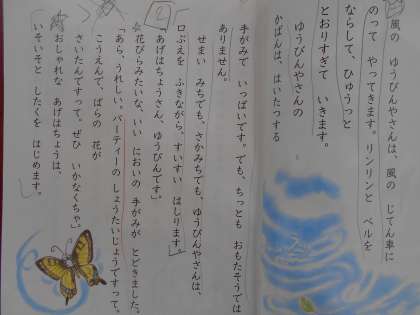 風の ゆうびんやさんは、風の じてん車に
のって やってきます。リンリンと ベルを
ならして、ひゅうっと
とおりすぎて いきます。
ゆうびんやさんの
かばんは、はいたつする
手がみで いっぱいです。でも、ちっとも おもたそうでは
ありません。
せまい みちでも、さかみちでも、ゆうびんやさんは、
口ぶえを ふきながら、すいすい はしります。
2
「あげはちょうさん、ゆうびんです。」
花びらみたいな、いい においの 手がみが とどきました。
「あら、うれしい。パーティーの しょうたいじょうですって。
こうえんで、ばらの 花が
さいたんですって。ぜひ いかなくちゃ。」
おしゃれな あげはちょうは、
いそいそと したくを はじめます。